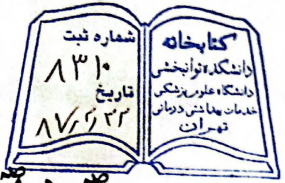 کتابخانه
دانشکده توانبخشی
دانشگاه علوم پزشکی
خدمات بهداشتی درمانی
تهران
شماره ثبت
۸۳۱۰
تاریخ